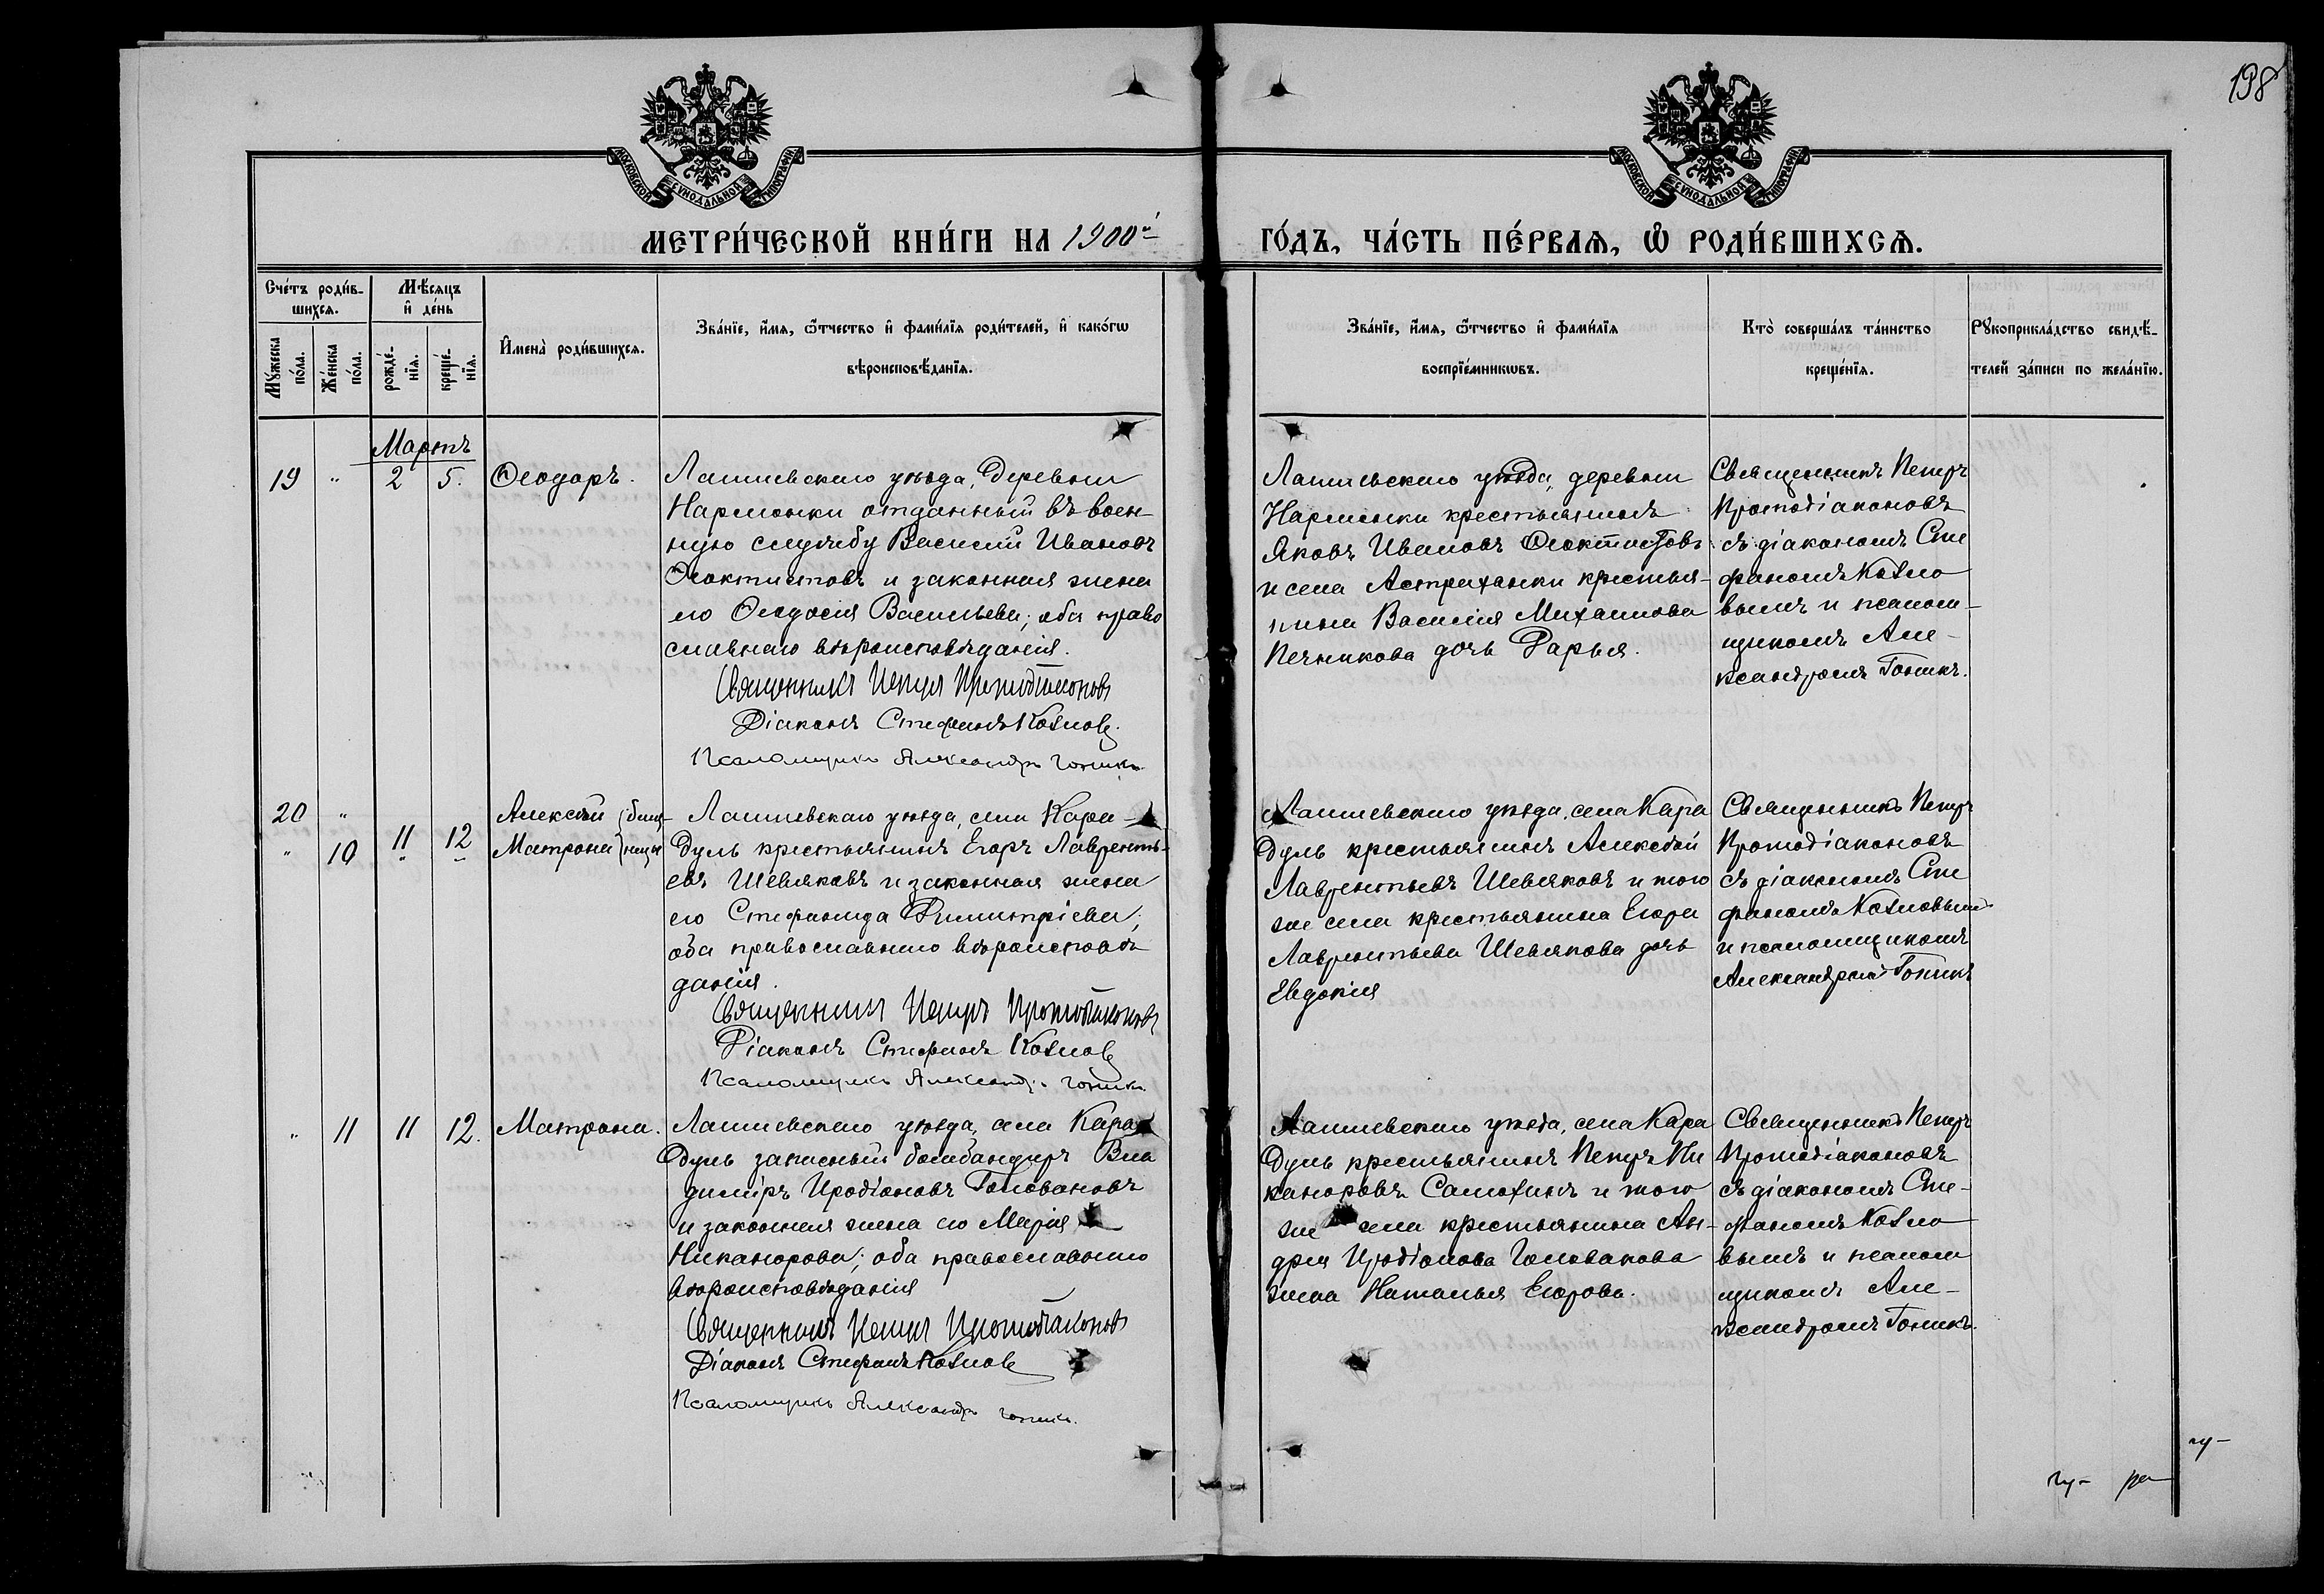 198
МОСКОВСКОЙ СѴНОДАЛЬНОЙ ТИПОГРАФІИ
МОСКОВСКОЙ СѴНОДАЛЬНОЙ ТИПОГРАФІИ
МЕТРИ́ЧЕСКОЙ КНИ́ГИ НА 1900й
ГО́ДЪ, ЧА́СТЬ ПЕ́РВАѦ, Ѽ РОДИ́ВШИХСѦ.
Сче́тъ роди́в-
шихсѧ.
Мꙋ́жеска по́ла.
Же́нска по́ла.
Мѣ́сѧцъ
и҆ де́нь
рожде́-
нїѧ.
креще́-
нїѧ.
И҆мена̀ роди́вшихсѧ.
Зва́нїе, и҆́мѧ, ѻ҆́тчество и҆ фами́лїѧ роди́телей, и҆ како́гѡ
вѣроисповѣ́данїѧ.
Зва́нїе, и҆́мѧ, ѻ҆́тчество и҆ фами́лїѧ
воспрїе́мникѡвъ.
Кто̀ соверша́лъ та́инство
креще́нїѧ.
Рꙋкоприкла́дство свидѣ́-
телей за́писи по жела́нїю.
Мартъ
19 " 2 5. Ѳеодоръ.
Лаишевскаго уѣзда, деревни
Нармонки отданный въ воен-
ную службу Василій Ивановъ
Ѳеоктистовъ и законная жена
его Ѳеодосія Васильева; оба право
славнаго вѣроисповѣданія.
Священникъ Петръ Протодіаконовъ
Діаконъ Стефанъ Козловъ.
Псаломщикъ Александръ Гоникъ.
Лаишевскаго уѣзда, деревни
Нармонки крестьянинъ
Яковъ Ивановъ Ѳеоктистовъ
и села Астраханки крестья-
нина Василія Михаилова
Печникова дочь Дарья.
Священникъ Петръ
Протодіаконовъ
съ діакономъ Сте
фаномъ Козло
вымъ и псалом-
щикомъ Але-
ксандромъ Гоникъ.
20 " Алексѣй (близ-
" 10 11 12 Матрона (нецы
Лаишевскаго уѣзда, села Кара-
дуль крестьянинъ Егоръ Лавренть-
евъ Шевляковъ и законная жена
его Стефанида Димитріева;
оба православнаго вѣроисповѣ
данія.
Священникъ Петръ Протодіаконовъ
Діаконъ Стефанъ Козловъ
Псаломщикъ Александръ Гоникъ.
Лаишевскаго уѣзда, села Кара
дуль крестьянинъ Алексѣй
Лаврентьевъ Шевляковъ и того
же села крестьянина Егора
Лаврентьева Шевлякова дочь
Евдокія
Священникъ Петръ
Протодіаконовъ
съ діакономъ Сте
фаномъ Козловымъ
и псаломщикомъ
Александромъ Гоникъ
" 11 11 12. Матрона.
Лаишевскаго уѣзда, села Кара
дуль запасный бомбандиръ Вла
диміръ Иродіоновъ Головановъ
и законная жена его Марія
Никанорова; оба православнаго
вѣроисповѣданія
Священникъ Петръ Протодіаконовъ
Діаконъ Стефанъ Козловъ
Псаломщикъ Александръ Гоникъ.
Лаишевскаго уѣзда, села Кара
дуль крестьянинъ Петръ Ни
каноровъ Самохинъ и того
же села крестьянина Ан-
дрея Иродіонова Голованова
жена Наталья Егорова.
Священникъ Петръ
Протодіаконовъ
съ діакономъ Сте-
фаномъ Козло
вымъ и псалом
щикомъ Але-
ксандромъ Гоникъ.